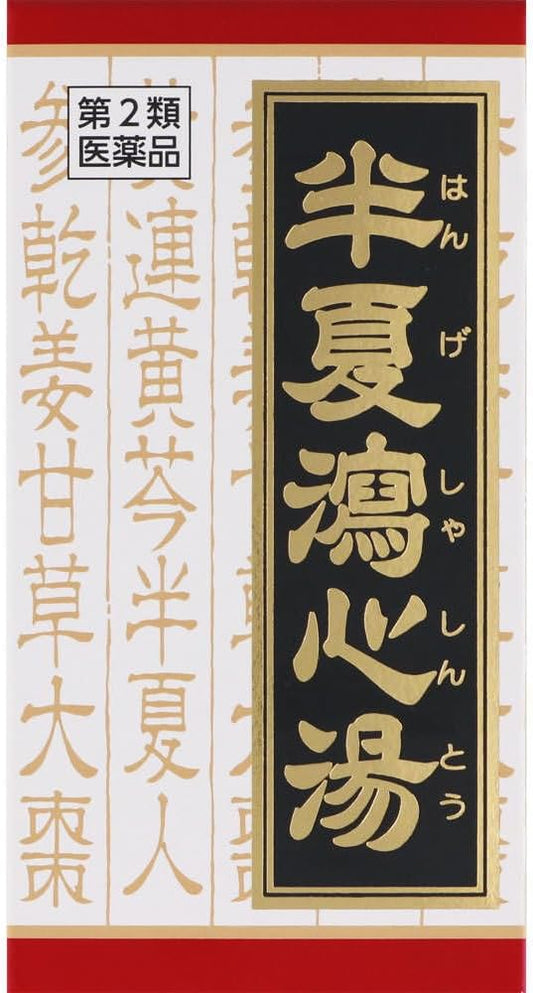 第2類
医薬品
半夏瀉心湯
はんげしゃしんとう
黄連黄芩半夏人
参乾姜甘草大棗